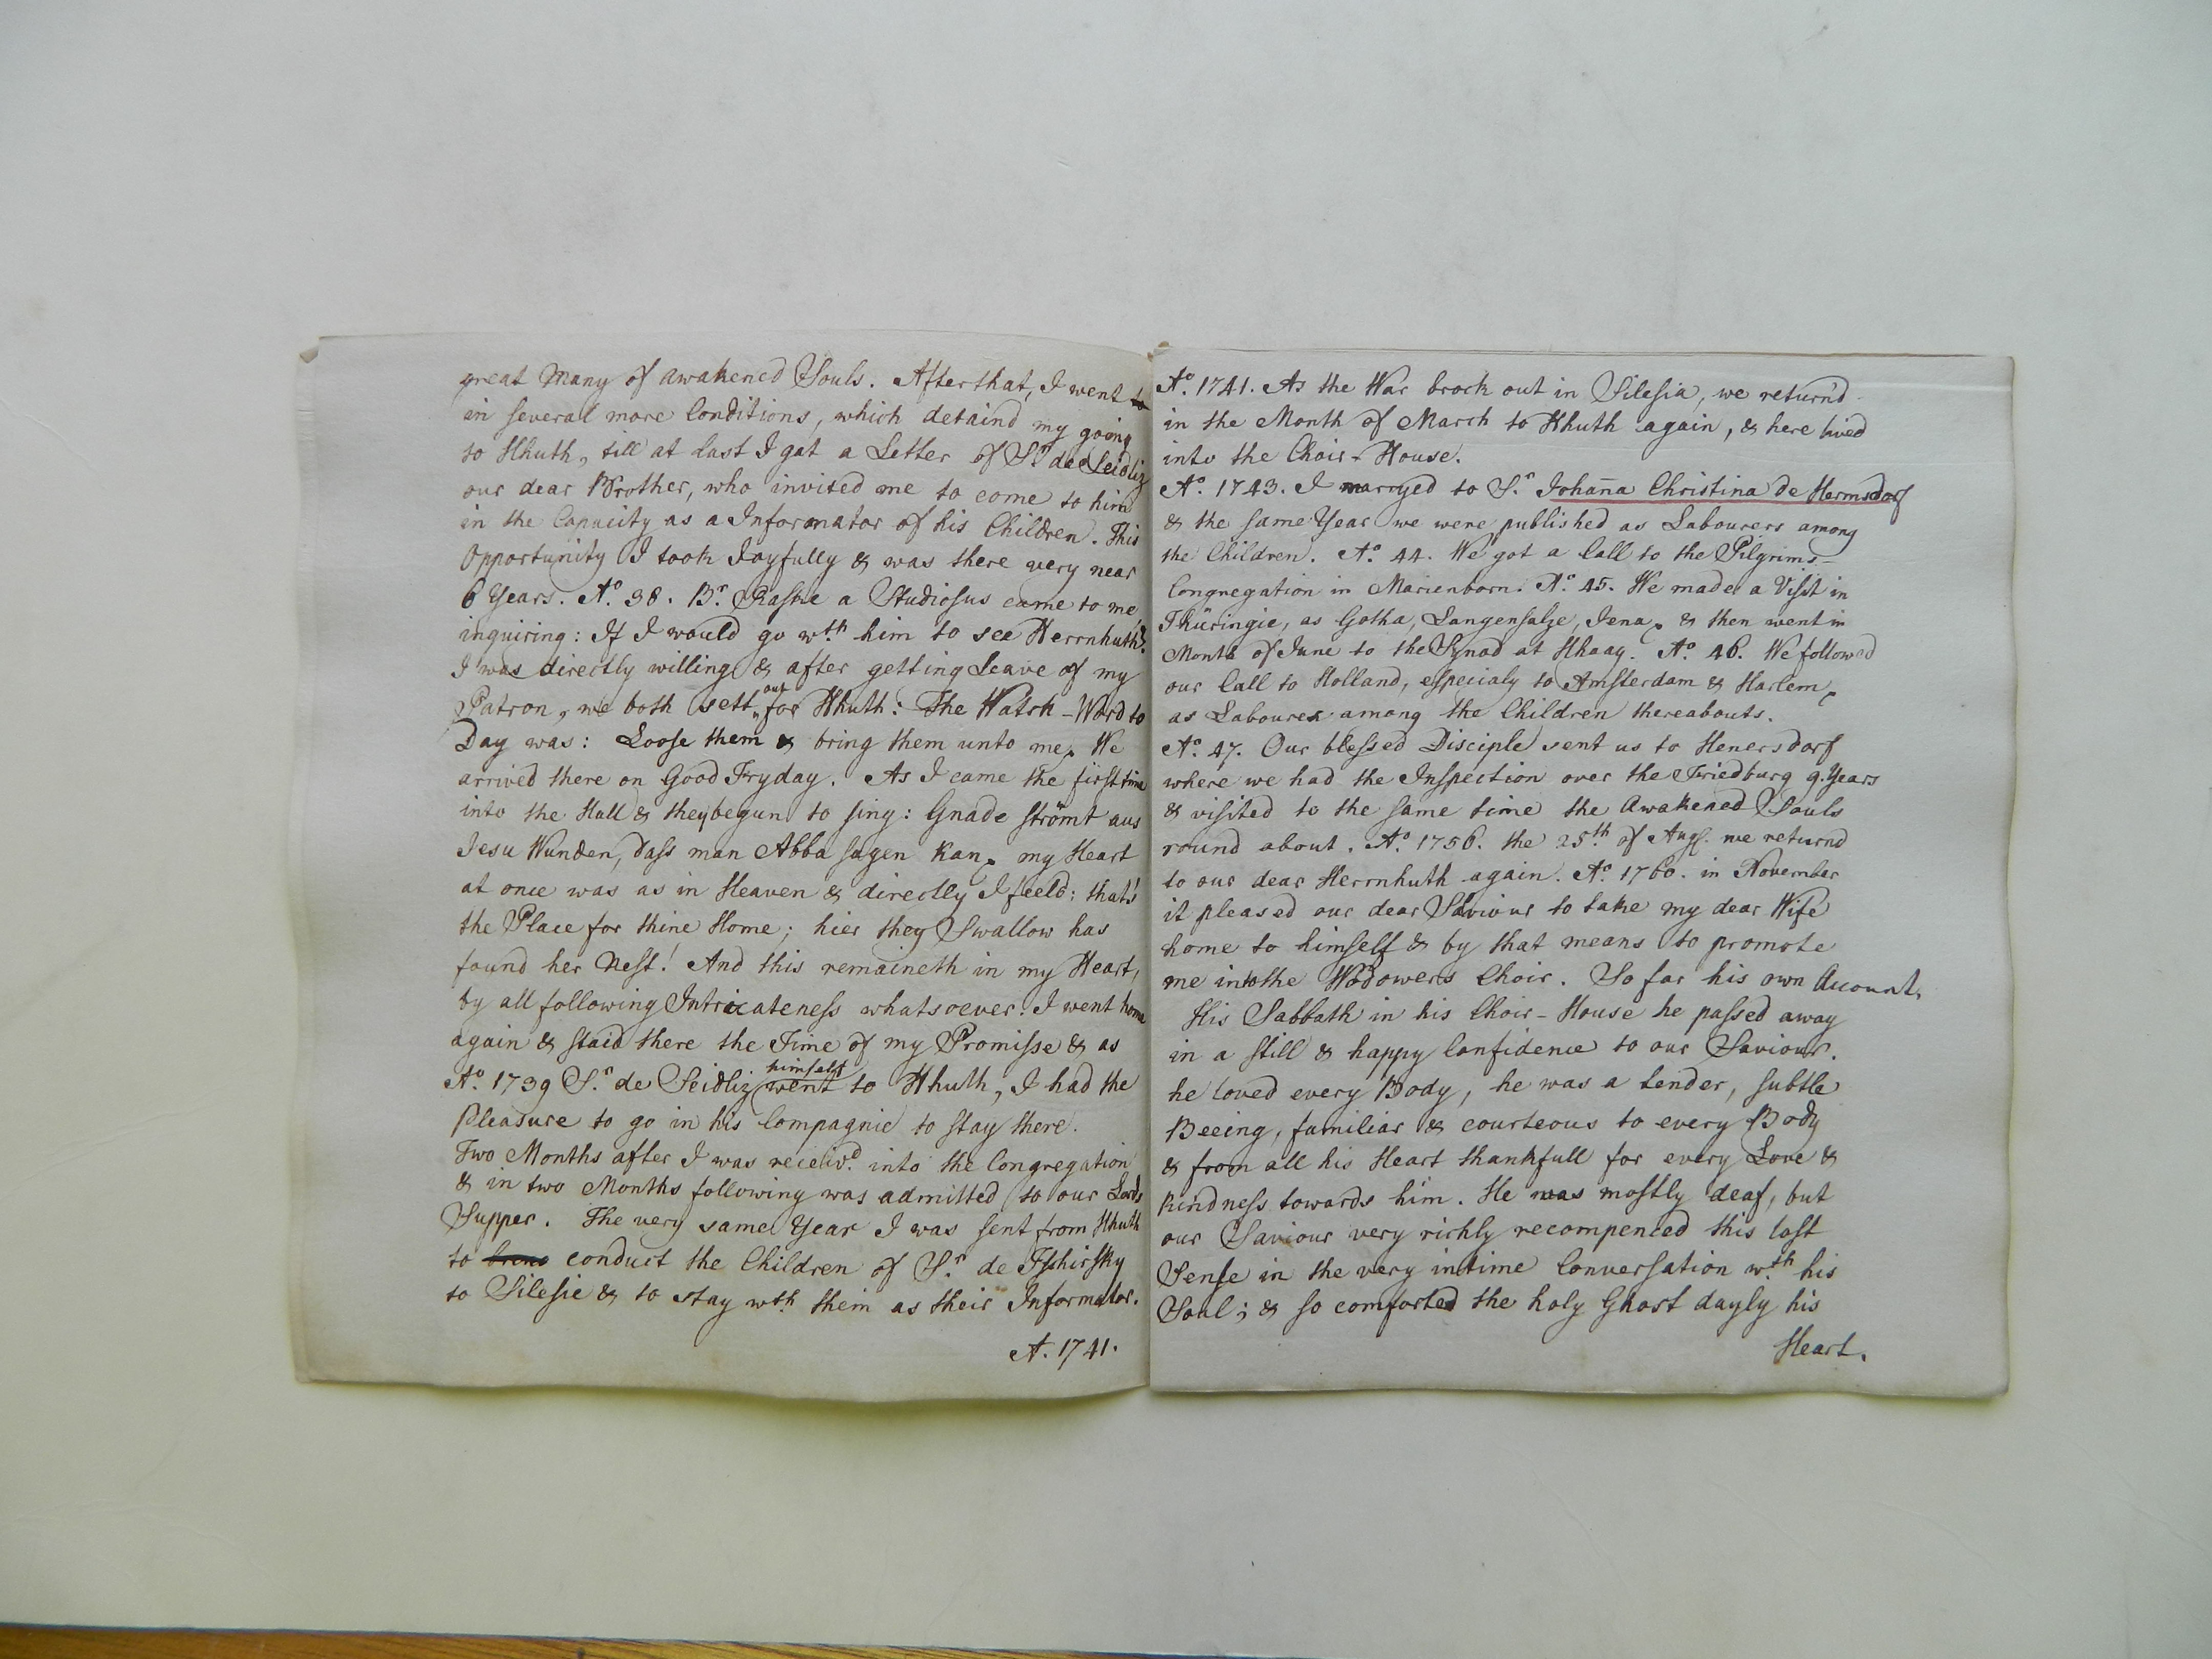 great Many of awakened Souls. After that, I went to
in several more Conditions, which detaind my going
to Hhuth, till at last I gat a Letter of Sr de Seidliz
our dear Brother, who invited me to come to him
in the Capacity as a Informator of his Children. This
Opportunity I took Joyfully & was there very near
6 Years. Ao. 38. Br. Raske a Studiosus came to me
inquiring: If I would go wth. him to see Herrnhuth?
I was directly willing & after getting Leave of my
Patron, we both sett out for Hhuth: The Watch-Word to
Day was: Loose them & bring them unto me. We
arrived there on Good Fryday. As I came the first time
into the Hall & they begun to sing: Gnade strömt aus
Jesu Wunden, dass man Abba sagen kan. my Heart
at once was as in Heaven & directly I feeld: that's
the Place for thine Home; hier they Swallow has
found her Nest! And this remaineth in my Heart,
by all following Intricateness whatsoever. I went home
again & staid there the Time of my Promisse & as
Ao. 1739 Sr. de Seidliz himself went to Hhuth, I had the
Pleasure to go in his Compagnie to stay there.
Two Months after I was receivd. into the Congregation
& in two Months following was admitted to our Lords
Supper. The very same Year I was sent from Hhuth
to conduct the Children of Sr. de Tschirsky
to Silesie & to stay wth. them as their Informator.
A. 1741.
Ao. 1741. As the War brock out in Silesia, we return'd
in the Month of March to Hhuth again, & here lived
into the Choir-House.
Ao. 1743. I marryed to Sr. Johaña Christina de Hermsdorf
& the same Year we were published as Labourers among
the Children. Ao. 44. We got a Call to the Pilgrims-
Congregation in Marienborn. Ao. 45. We made a Visit in
Thüringie, as Gotha, Langensalze, Jena, & then went in
Month of June to the Synod at Hhaag. Ao. 46. We followed
our Call to Holland, especialy to Amsterdam & Harlem,
as Labourer among the Children thereabouts.
Ao. 47. Our blessed Disciple sent us to Henersdorf
where we had the Inspection over the Friedburg 9. Years
& visited to the same time the Awakened Souls
round about. Ao. 1756. the 25th. of Augs. we returnd
to our dear Herrnhuth again. Ao. 1760. in November
it pleased our dear Saviour to take my dear Wife
home to himself & by that means to promote
me into the Widowers Choir. So far his own Account.
His Sabbath in his Choir-House he passed away
in a still & happy Confidence to our Saviour.
he loved every Body, he was a tender, subtle
Beeing, familiar & courteous to every Body
& from all his Heart thankfull for every Love &
kindness towards him. He was mostly deaf, but
our Saviour very richly recompenced this lost
Sense in the very intime Conversation wth. his
Soul; & so comforted the holy Ghost dayly his
Heart.